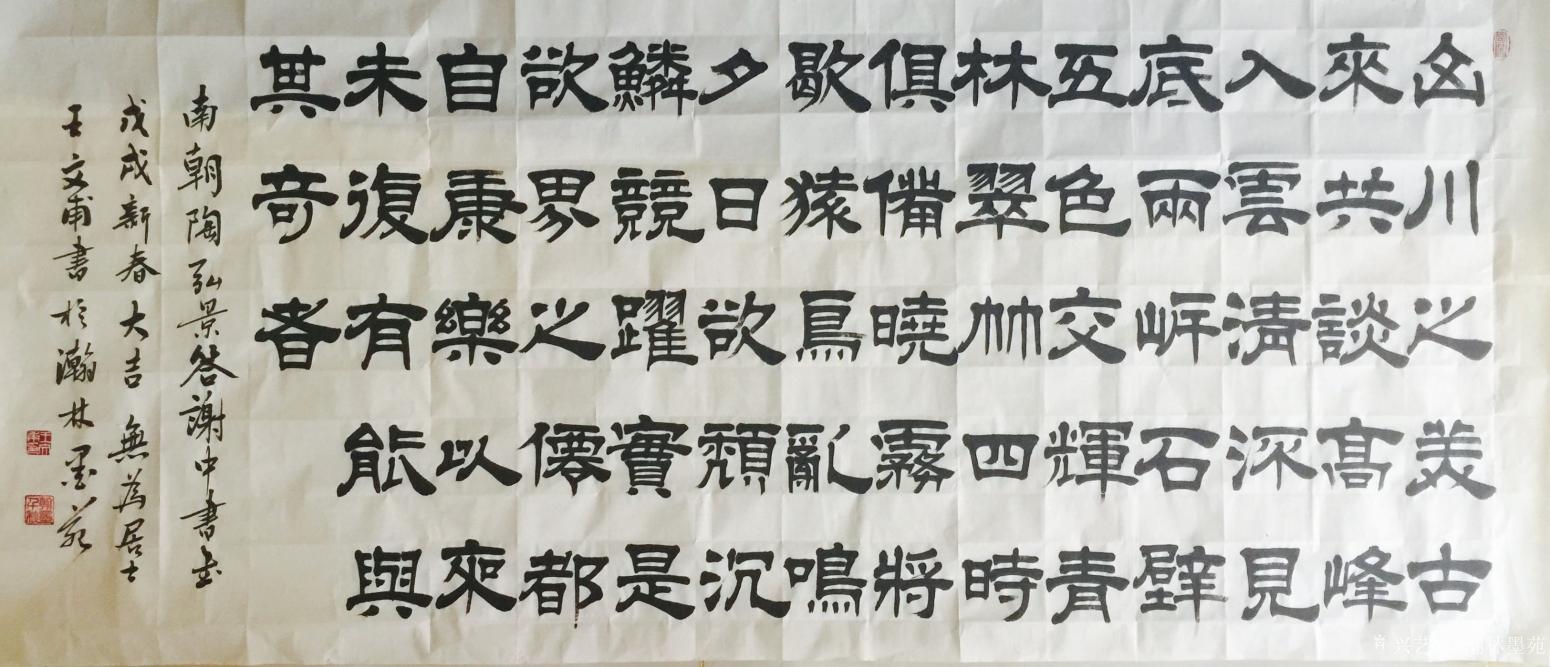 山川之美古
來共談高峰
入雲清流見
底兩岸石壁
五色交輝青
林翠竹四時
俱備曉霧將
歇猿鳥亂鳴
夕日欲頹沉
鱗競躍實是
欲界之僊都
自康樂以來
未復有能與
其奇者
南朝陶弘景答謝中書書
戊戌新春大吉 無為居士
王文甫書於瀚林墨苑